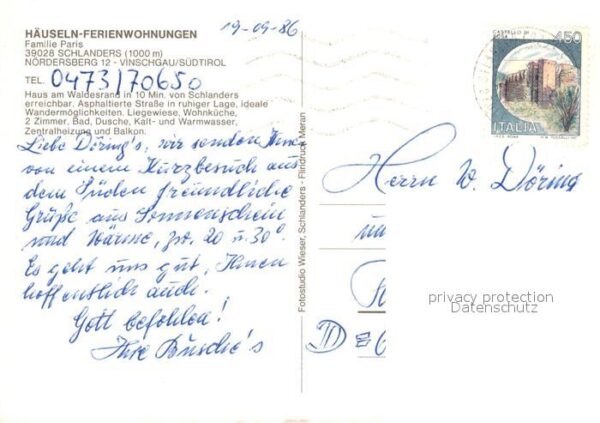 HÄUSELN-FERIENWOHNUNGEN
Familie Paris
39028 SCHLANDERS (1000 m)
NÖRDERSBERG 12 - VINSCHGAU/SÜDTIROL
TEL. 0473/70650
Haus am Waldesrand in 10 Min. von Schlanders
erreichbar. Asphaltierte Straße in ruhiger Lage, ideale
Wandermöglichkeiten. Liegewiese, Wohnküche,
2 Zimmer, Bad, Dusche, Kalt- und Warmwasser,
Zentralheizung und Balkon.
19-09-86
Liebe Döring's, wir senden Ihnen
von einem Kurzbesuch aus
dem Süden freundliche
Grüße aus Sonnenschein
und Wärme, zt. 20 u. 30°.
Es geht uns gut, Ihnen
hoffentlich auch.
Gott befohlen!
Ihre Busche's
Fotostudio Wieser, Schlanders - Flridruck Meran
CASTELLO DI
450
ITALIA
Herrn W. Döring
un
D
privacy protection
Datenschutz